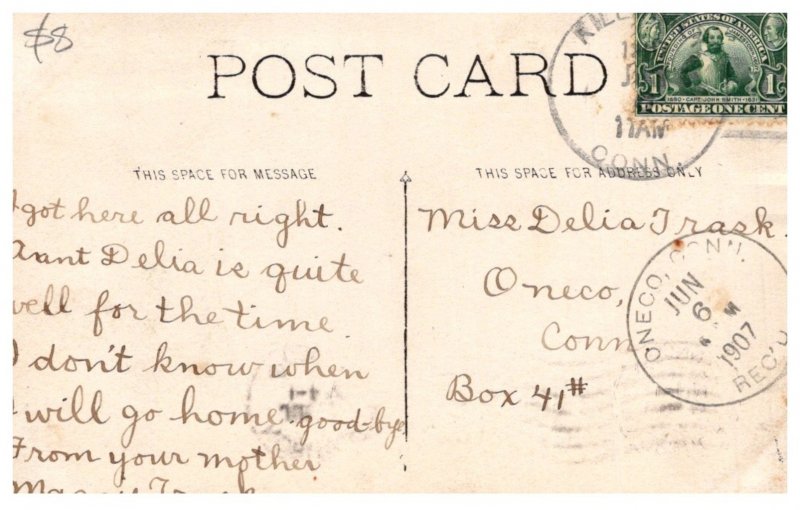 $8
POST CARD
UNITED STATES OF AMERICA
1 1
1580 · CAPT. JOHN SMITH · 1631
POSTAGE ONE CENT
11 AM
CONN.
THIS SPACE FOR MESSAGE
THIS SPACE FOR ADDRESS ONLY
I got here all right.
Aunt Delia is quite
well for the time
I don't know when
I will go home good-bye
From your mother
Miss Delia Trask.
Oneco,
Conn
Box 41#
ONECO, CONN.
JUN
6
M
1907
REC'D